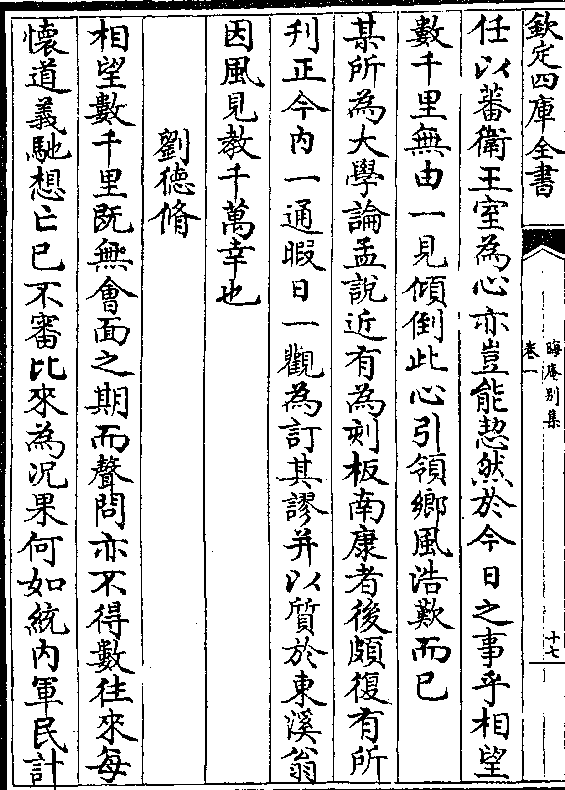 欽定四庫全書
晦庵别集
卷一
十七
任以蕃衛王室為心亦豈能恝然於今日之事乎相望
數千里無由一見傾倒此心引領鄉風浩歎而已
某所為大學論孟說近有為刻板南康者後頗復有所
刋正今内一通暇日一觀為訂其謬并以質於東溪翁
因風見教千萬幸也
劉德脩
相望數千里既無會面之期而聲問亦不得數往來每
懷道義馳想亡已不審比來為况果何如統内軍民計